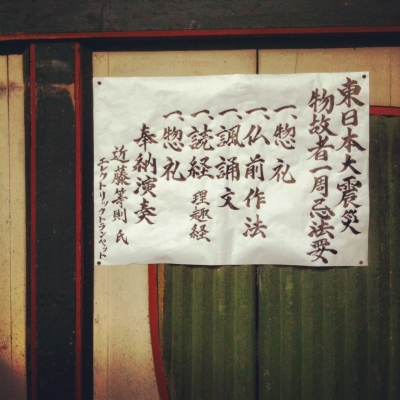 東日本大震災
物故者一周忌法要
一、惣礼
一、仏前作法
一、諷誦文
一、読経 理趣経
一、惣礼
奉納演奏
近藤等則 氏
エレクトリックトランペット